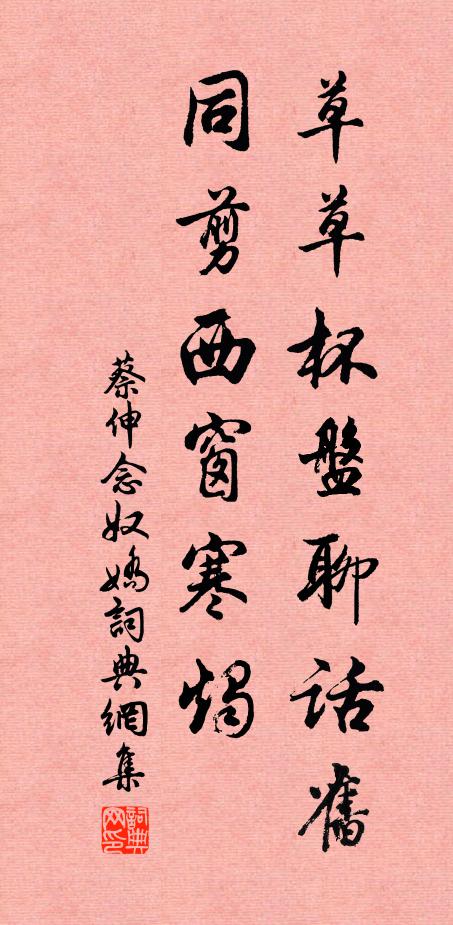 草草杯盤聊話舊
同剪西窗寒燭
蔡伸念奴嬌詞典網集
詞典网印